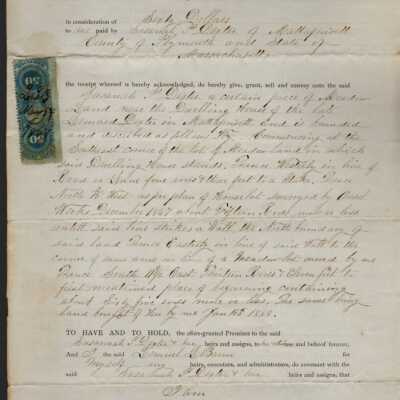 in consideration of Sixty Dollars
to me paid by P. Dexter of Mattapoisett
County of Plymouth and State of
Massachusetts
the receipt whereof is hereby acknowledged, do hereby give, grant, sell and convey unto the said
P. Dexter a certain piece of Meadow
Land near the Dwelling House of the late
Dexter in Mattapoisett and is bounded
and described as follows Viz. Commencing at the
Southeast corner of the lot of Meadow land in which
said Dwelling House stands, Thence Westerly in line of
Road four rods & three feet to a Stake. Thence
North West as per plan of House lot surveyed by
December 1847 about Fifteen Rods more or less
untill said line strikes a Wall, the North boundary of
said land Thence Easterly in line of said Wall to the
corner of same and in line of a Meadow lot owned by me
Thence South East Fourteen Rods & Seven feet to
first mentioned place of beginning containing
about Sixty five rods more or less. The same being
land bought of by me Jan 1868.
50
50
TO HAVE AND TO HOLD, the afore-granted Premises to the said
P. Dexter & her heirs and assigns, to use and behoof forever,
And I the said for
myself my heirs, executors, and administrators, do covenant with the
said P. Dexter & her heirs and assigns, that
I am